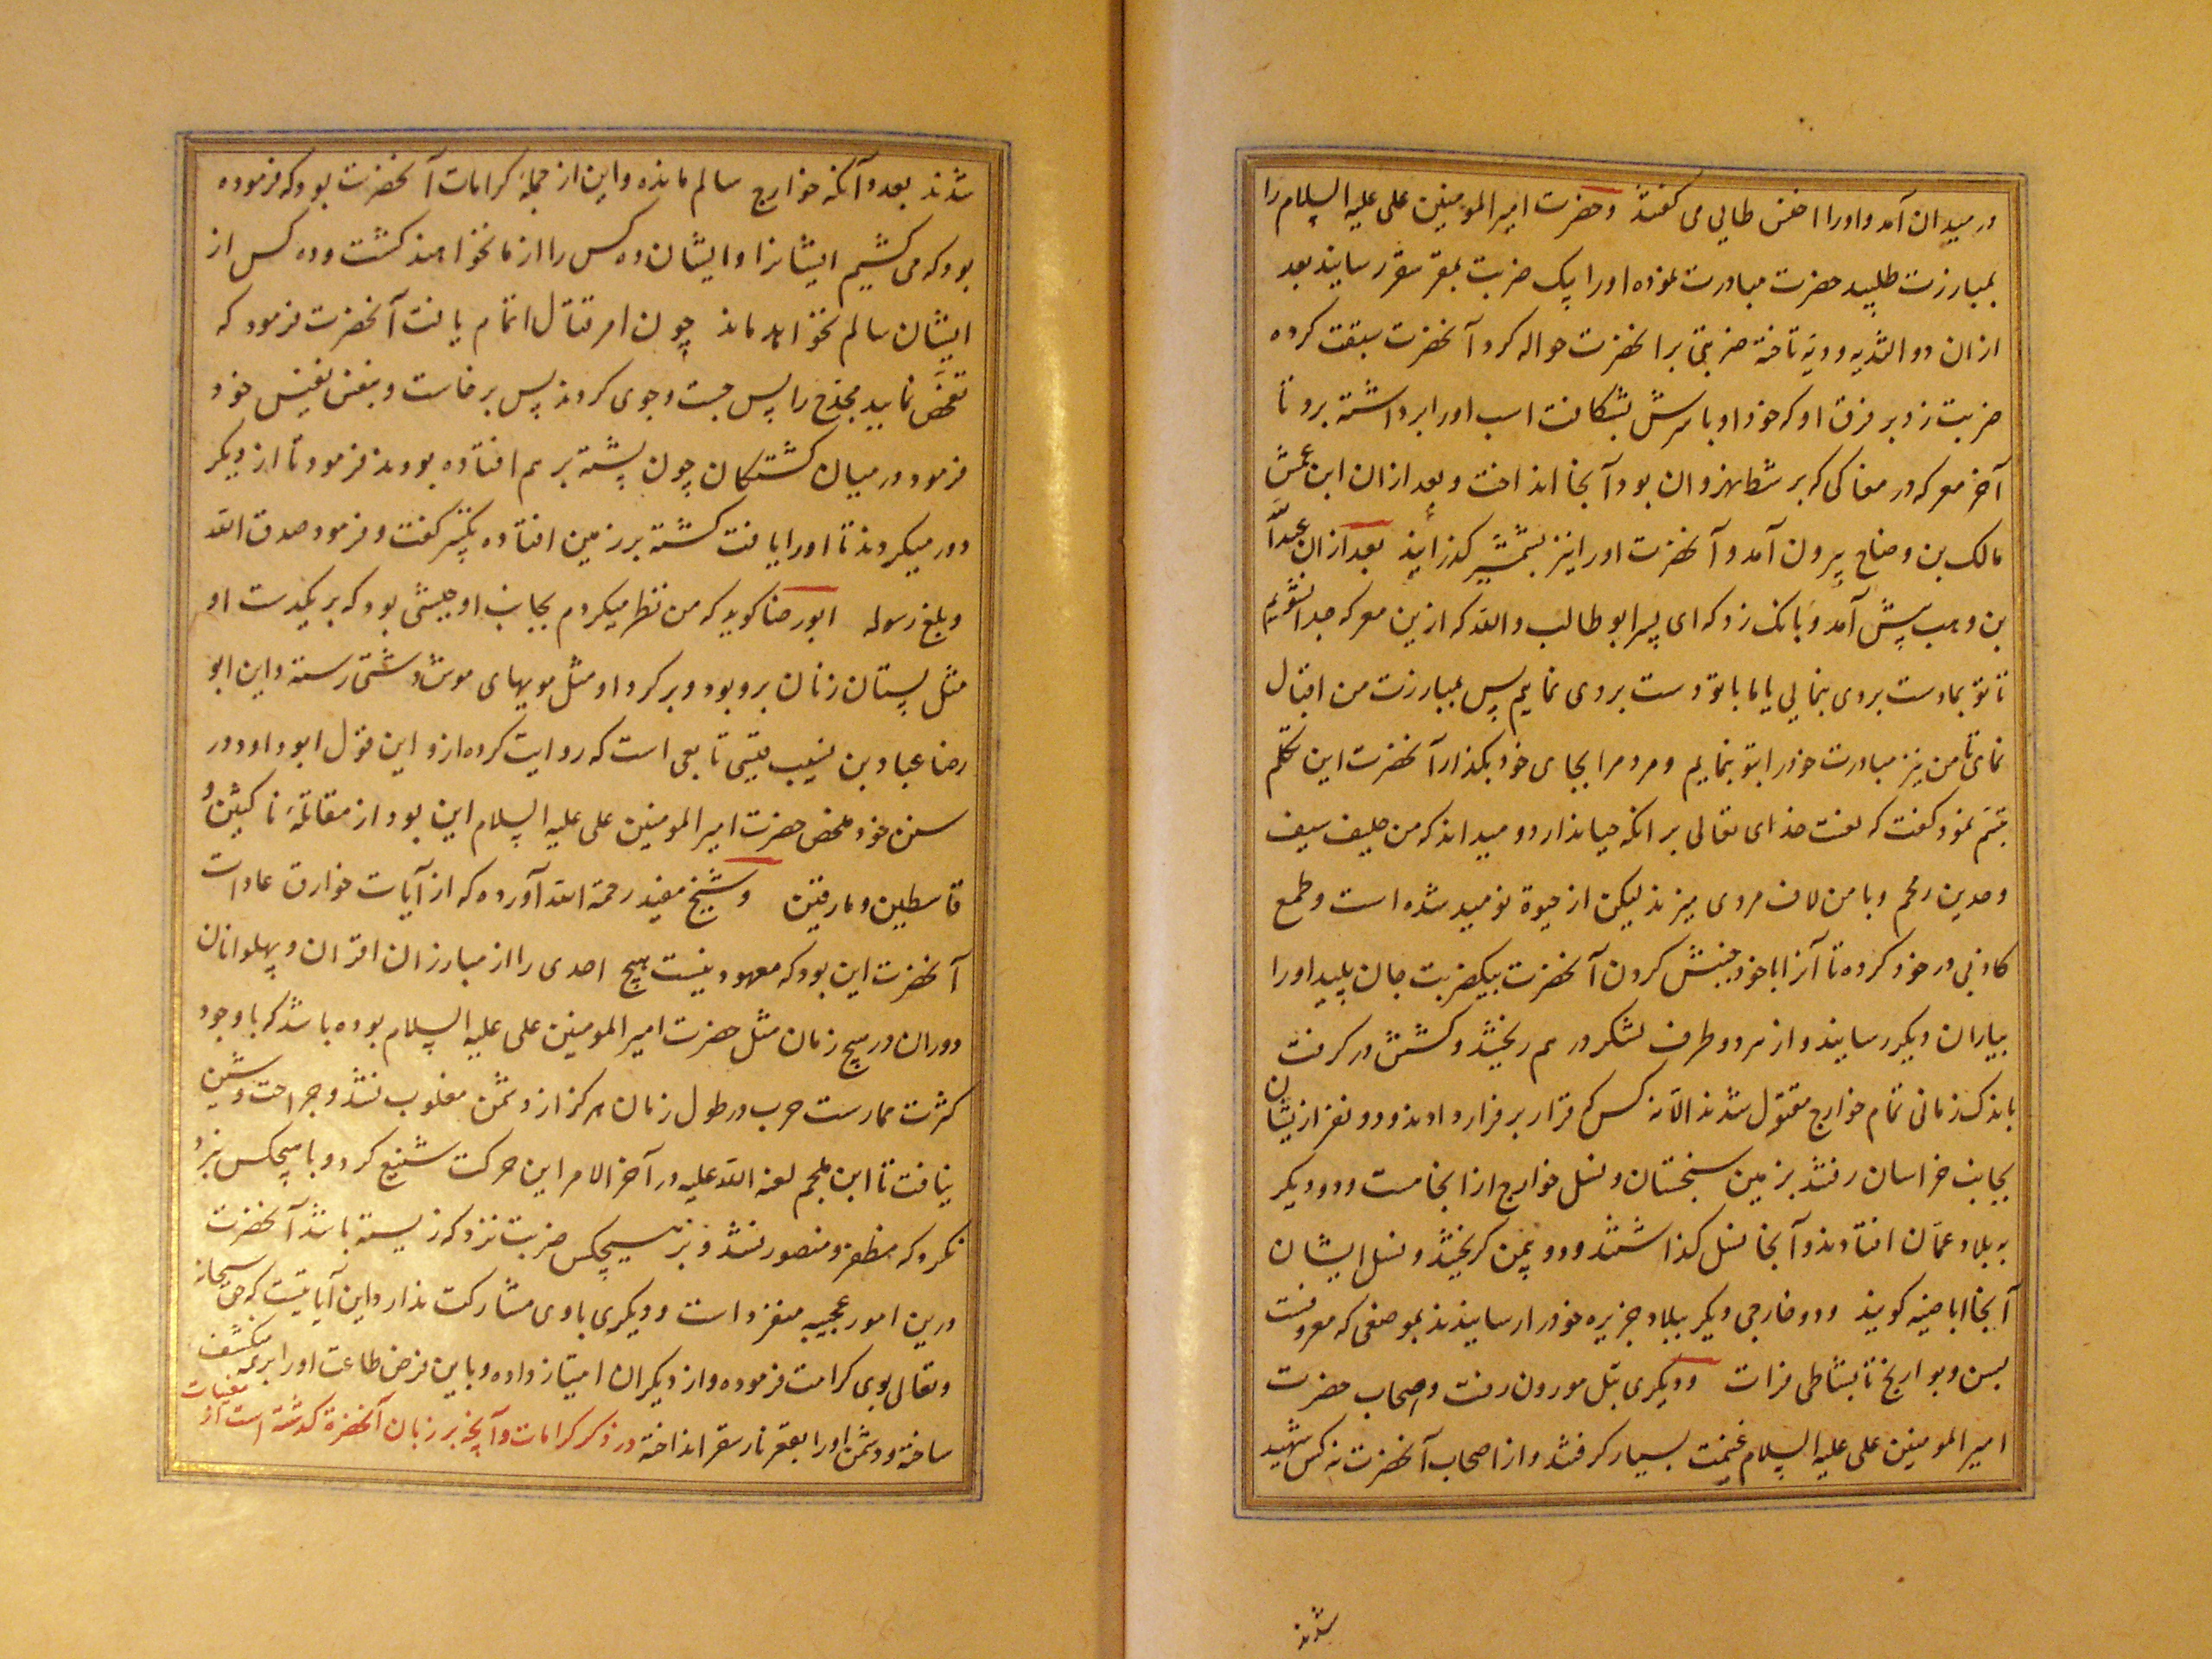 در میدان آمد و اورا اخنس طایی می گفتند و حضرت امیر المومنین علی علیه السلام را
بمبارزت طلبید حضرت مبادرت نموده اورا بیک ضربت بمقر سقر رسانید بعد
ازان ذو الثدیه دویه تاخته ضربتی بر آنحضرت حواله کرد آنحضرت سبقت کرده
ضربت زد بر فرق او که خود او با سرش بشکافت اسب اورا برداشته برد تا
آخر معرکه در مغاکی که بر شط نهروان بود آنجا انداخت و بعد ازان ابن عمش
مالک بن وضاح بیرون آمد و آنحضرت اورا نیز بشمشیر گذرانید بعد ازان عبد الله
بن وهب پیش آمد و بانک زد که ای پسر ابو طالب والله که ازین معرکه جدا نشویم
تا تو بما دست بردی بنمایی یا ما با تو دست بردی نماییم پس بمبارزت من اقبال
نمای تا من نیز مبادرت خود را بتو بنمایم و مردم را بجای خود بگذار آنحضرت این تکلم
تبسم نمود گفت که لعنت خدای تعالی بر آنکه حیا ندارد و میداند که من حلیف سیف
و خدین رمحم و با من لاف مردی میزند لیکن از حیوة نومید شده است و طمع
کاذبی در خود کرده تا آنرا با خود جنبش کردن آنحضرت بیکضربت جان پلید اورا
بیاران دیگر رسانید و از هر دو طرف لشکر در هم ریختند و کشش در گرفت
باندک زمانی تمام خوارج مقتول شدند الا نه کس که قرار بر فرار دادند و دو نفر ازیشان
بجانب خراسان رفتند بزمین سجستان و نسل خوارج از آنجاست و دو دیگر
به بلاد عمان افتادند و آنجا نسل گذاشتند و دو بیمن گریختند و نسل ایشان
آنجا اباضیه گویند و دو خارجی دیگر ببلاد جزیره خود را رسانیدند بموضعی که معروفست
بسن و بواریخ تا بشاطی فرات و دیگری بتل مورون رفت و اصحاب حضرت
امیر المومنین علی علیه السلام غنیمت بسیار گرفتند و از اصحاب آنحضرت نه کس شهید
شدند
شدند بعدد آنکه خوارج سالم مانده و این از جمله کرامات آنحضرت بود که فرموده
بود که می کشیم ایشانرا و ایشان ده کس را از ما نخواهند کشت و ده کس از
ایشان سالم نخواهد ماند چون امر قتال اتمام یافت آنحضرت فرمود که
تفحص نمایید مخدج را پس جست وجوی کردند پس برخاست و بنفس نفیس خود
فرمود در میان کشتگان چون پشته بر هم افتاده بودند فرمود تا از یکدیگر
دور میکردند تا اورا یافت کشته بر زمین افتاده تکبیر گفت و فرمود صدق الله
و بلغ رسوله ابو رضا گوید که من نظر میکردم بجانب او حبشی بود که بر یکدست او
مثل پستان زنان برو بود و بر گرد او مثل مویهای موش دشتی رسته و این ابو
رضا عباد بن نسیب قیسی تابعی است که روایت کرده ازو این قول ابو داود در
سنن خود ملخص حضرت امیر المومنین علی علیه السلام این بود از مقاتله ناکثین و
قاسطین و مارقین و شیخ مفید رحمة الله آورده که از آیات خوارق عادات
آنحضرت این بود که معهود نیست هیچ احدی را از مبارزان اقران و پهلوانان
دوران در هیچ زمان مثل حضرت امیر المومنین علی علیه السلام بوده باشد که با وجود
کثرت ممارست حرب در طول زمان هرگز از دشمن مغلوب نشد و جراحت و شین
نیافت تا ابن ملجم لعنة الله علیه در آخر الامر این حرکت شنیع کرد و با هیچکس نبرد
نکرد که مظفر و منصور نشد و نیز هیچکس ضربت نزد که زیسته باشد آنحضرت
درین امور عجیبه منفرد است و دیگری با وی مشارکت ندارد این آیاتیست که حق سبحانه
و تعالی بوی کرامت فرموده و از دیگران امتیاز داده و باین فرض طاعت اورا بر همه منکشف
ساخته و دشمن اورا بقعر نار سقر انداخته در ذکر کرامات و آنچه بر زبان آنحضرة گذشته است از مغیبات